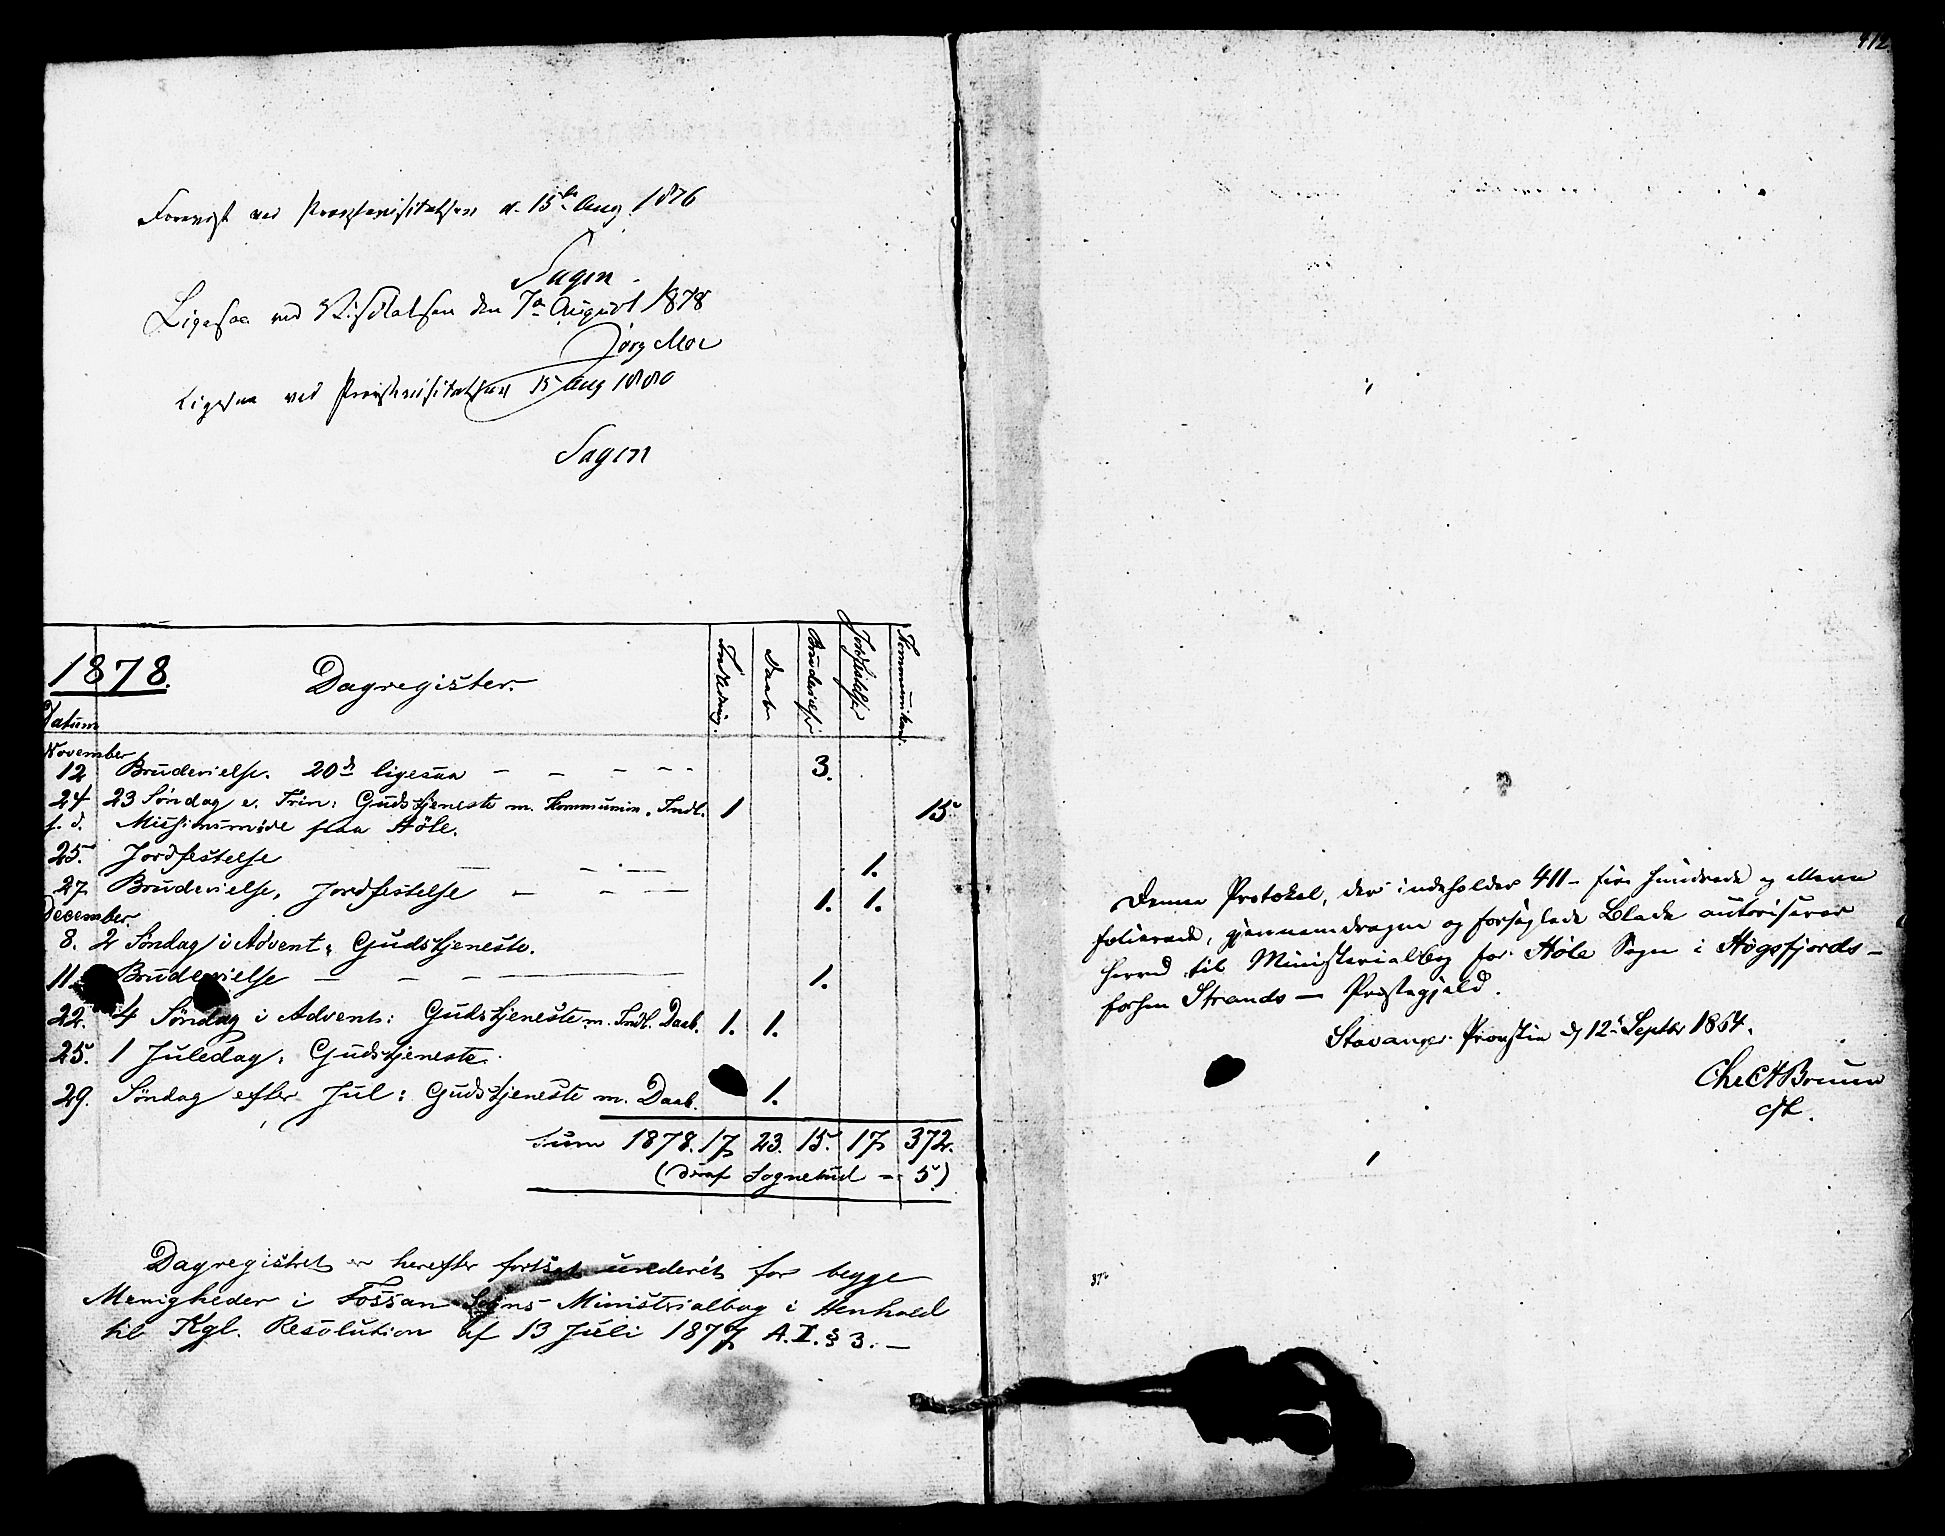 412.
Forevist ved Provstevisitatsen d. 15de Aug. 1876
Sagen.
Ligesaa ved Visitatsen den 7de August 1878
Jørg Moe
Ligesaa ved Provstevisitatsen 15 Aug 1880
Sagen
1878. Dagregister. Indledning. Daab Brudevielse Jordfæstelse Kommunikant.
Datum
November
12 Brudevielse. 20de ligesaa - - - - - 3.
24 23 Søndag e. Trin: Gudstjeneste m. Kommunion. Indl. 1 15
s. d. Missionsmøde paa Höle.
25. Jordfestelse - - - 1.
27 Brudevielse, Jordfestelse - - - 1. 1.
December
8. 2 Søndag i Advent: Gudstjeneste.
11. Brudevielse - - - 1.
22. 4 Søndag i Advent: Gudstjeneste m. Indl. Daab. 1. 1.
25. 1 Juledag: Gudstjeneste.
29. Søndag efter Jul: Gudstjeneste m. Daab. 1.
Sum 1878. 17 23. 15. 17 372.
(deraf Sognebud - 5.)
Dagregistret er herefter fortsat underét for begge
Menigheder i Fossan Sogns Ministerialbog i Henhold
til Kgl. Resolution af 13 Juli 1877 A. I. § 3. -
Denne Protokol, der indeholder 411 - fire hundrede og elleve
folierede, gjennemdragne og forseglede Blade autoriseres
herved til Ministerialbog for Höle Sogn i Høgsfjords -
forhen Strands - Præstegjeld.
Stavanger Provsti d. 12 Septbr 1864.
Chr. A Bruun
cst.